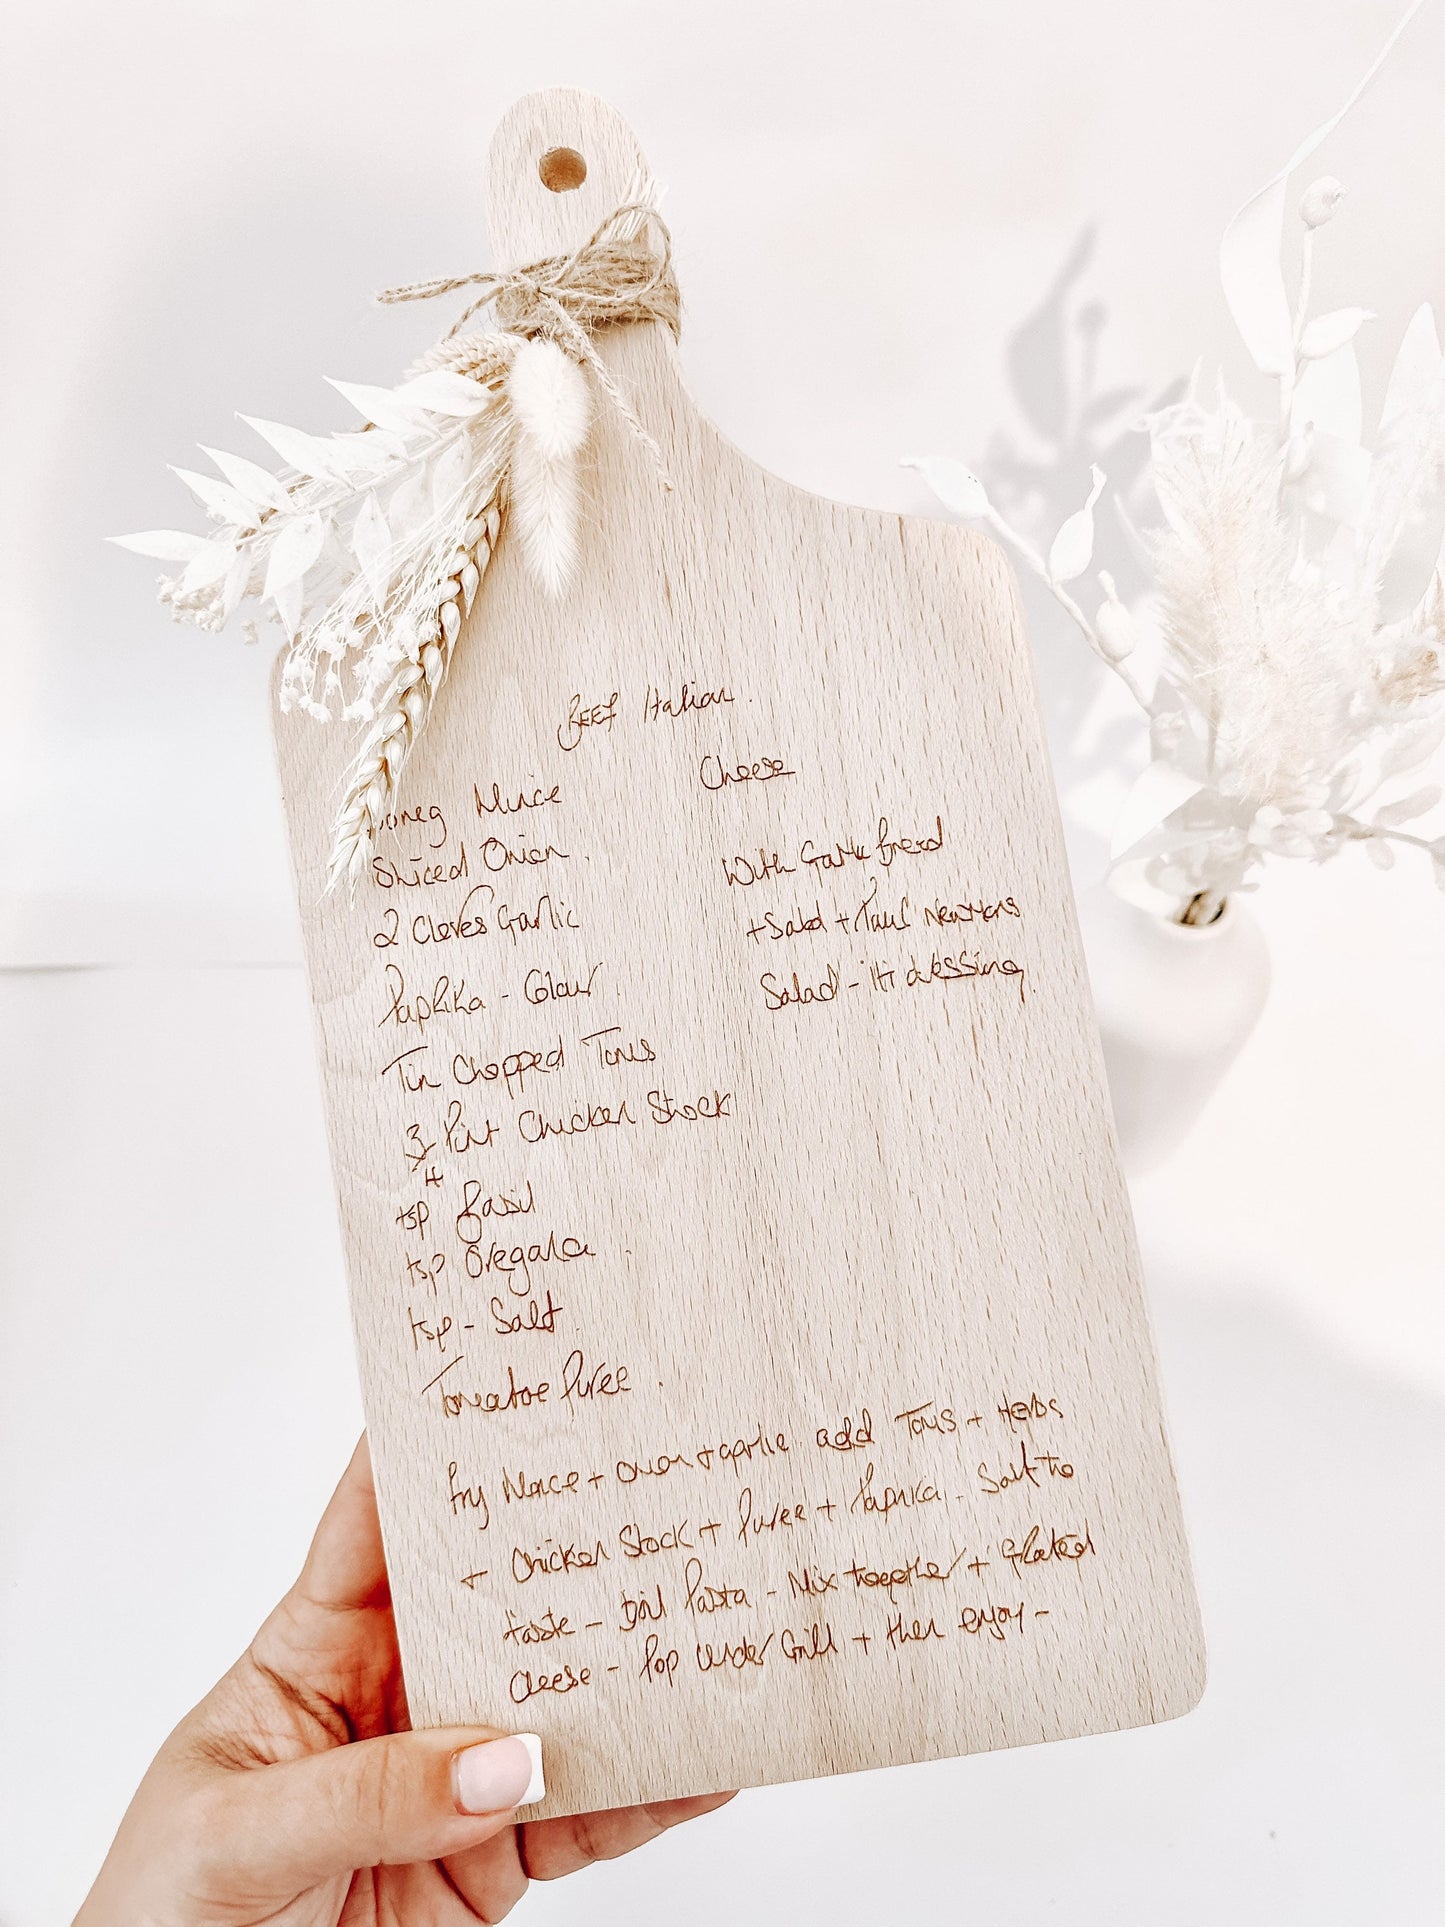 BEEF Italian.
Mince
Cheese
Sliced Onion.
With Garlic Bread
2 Cloves Garlic
+ Salad + Paul Newmans
Paprika - Colour.
Salad - iti dressing.
Tin Chopped Toms
3/4 Pint Chicken Stock
tsp Basil
tsp Oregano.
tsp - Salt.
Tomatoe Puree.
Fry Mince + onion + garlic. add Toms + Herbs
+ Chicken Stock + Puree + Paprika. Salt to
taste - boil Pasta - Mix together + Grated
Cheese - Pop under Grill + then enjoy -